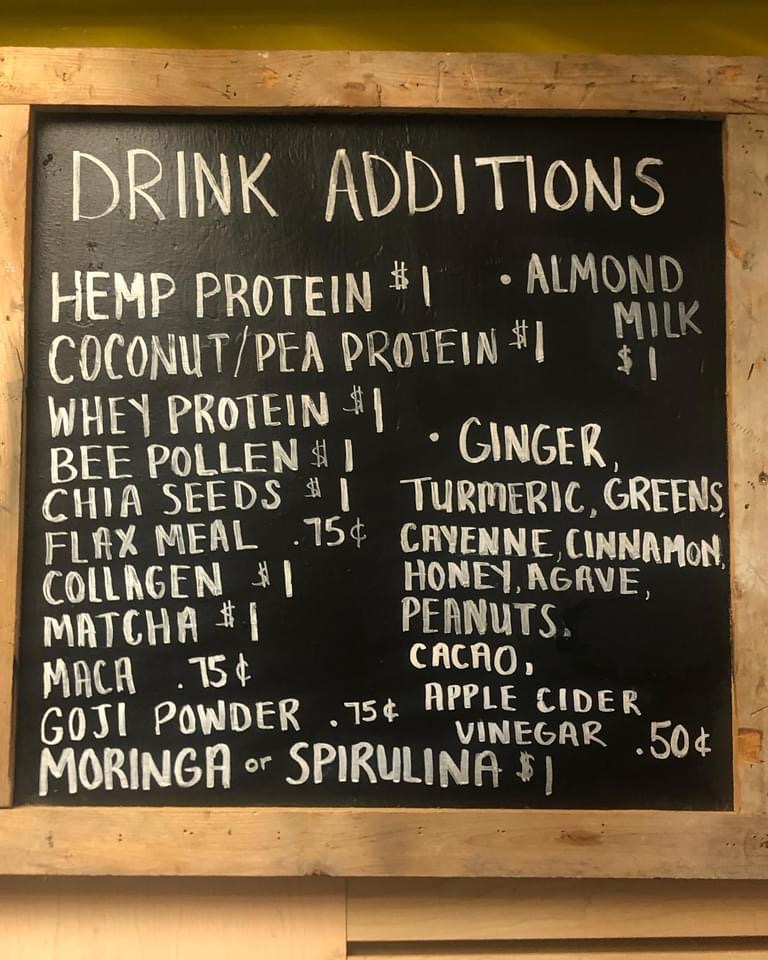 DRINK ADDITIONS
HEMP PROTEIN $1
COCONUT/PEA PROTEIN $1
WHEY PROTEIN $1
BEE POLLEN $1
CHIA SEEDS $1
FLAX MEAL .75¢
COLLAGEN $1
MATCHA $1
MACA .75¢
GOJI POWDER .75¢
MORINGA or SPIRULINA $1
• ALMOND
MILK
$1
• GINGER,
TURMERIC, GREENS,
CAYENNE, CINNAMON,
HONEY, AGAVE,
PEANUTS,
CACAO,
APPLE CIDER
VINEGAR .50¢